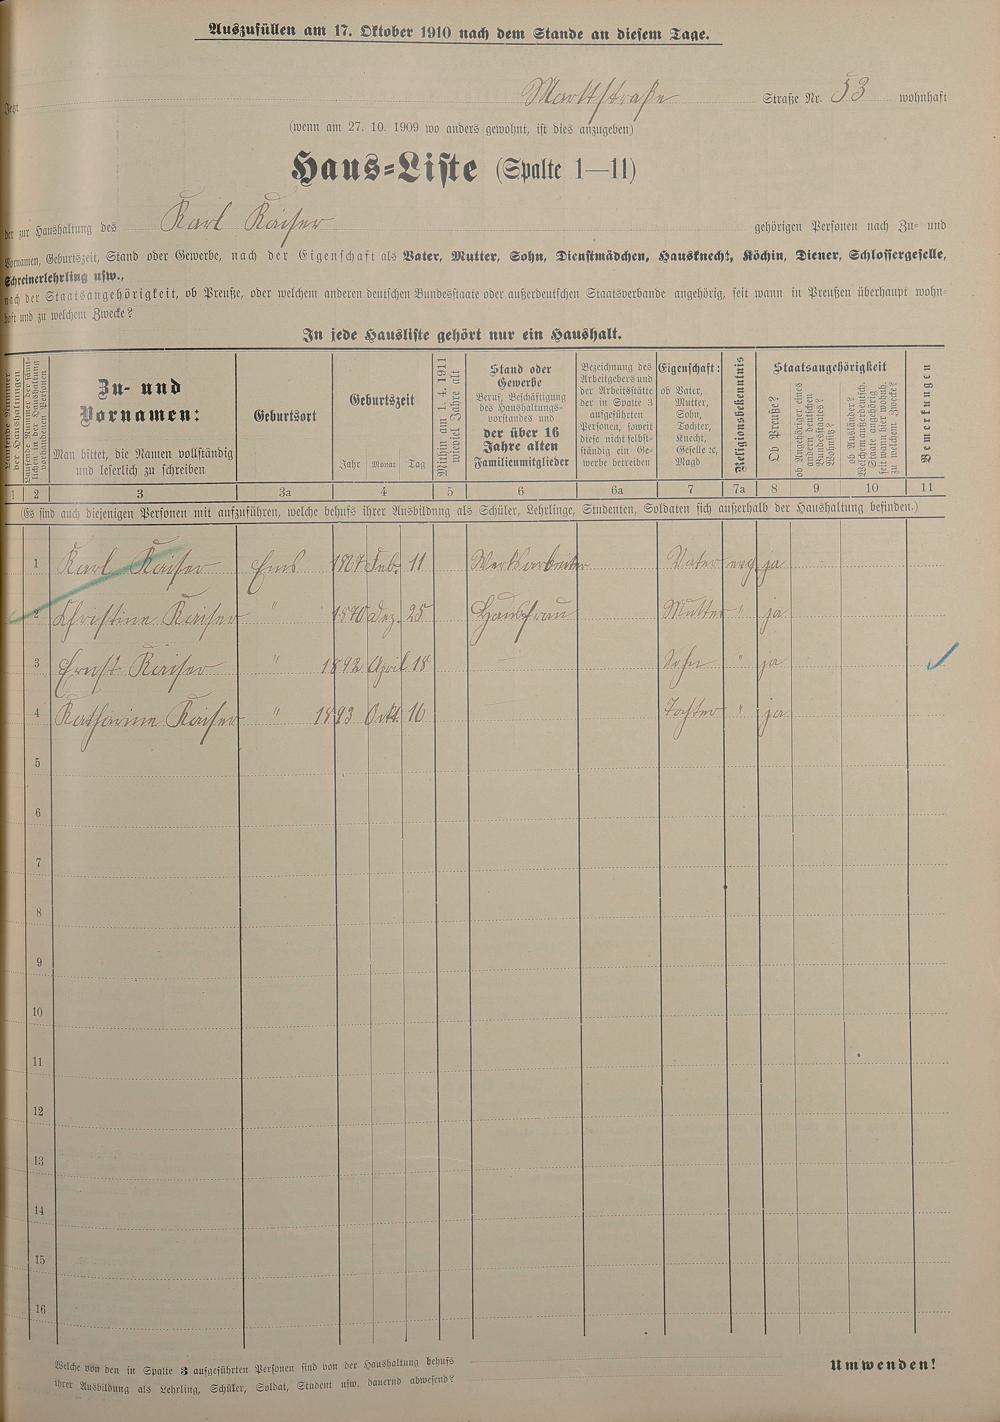 Auszufüllen am 17. Oktober 1910 nach dem Stande an diesem Tage.
Jetzt Marktstraße Straße Nr. 53 wohnhaft
(wenn am 27. 10. 1909 wo anders gewohnt, ist dies anzugeben)
Haus-Liste (Spalte 1—11)
der zur Haushaltung des Karl Kaiser gehörigen Personen nach Zu- und
Vornamen, Geburtszeit, Stand oder Gewerbe, nach der Eigenschaft als Vater, Mutter, Sohn, Dienstmädchen, Hausknecht, Köchin, Diener, Schlossergeselle,
Schreinerlehrling usw.,
nach der Staatsangehörigkeit, ob Preuße, oder welchem anderen deutschen Bundesstaate oder außerdeutschen Staatsverbande angehörig, seit wann in Preußen überhaupt wohn-
haft und zu welchem Zwecke?
In jede Hausliste gehört nur ein Haushalt.
Laufende Nummer der Haushaltungen
Laufende Nummer der sämt-
lichen in der Haushaltung
vorhandenen Personen
Zu- und
Vornamen:
Man bittet, die Namen vollständig
und leserlich zu schreiben
Geburtsort
Geburtszeit
Jahr Monat Tag
Mithin am 1. 4. 1911
wieviel Jahre alt
Stand oder
Gewerbe
Beruf, Beschäftigung
des Haushaltungs-
vorstandes und
der über 16
Jahre alten
Familienmitglieder
Bezeichnung des
Arbeitgebers und
der Arbeitsstätte
der in Spalte 3
aufgeführten
Personen, soweit
diese nicht selbst-
ständig ein Ge-
werbe betreiben
Eigenschaft:
ob Vater,
Mutter,
Sohn,
Tochter,
Knecht,
Geselle ec,
Magd
Religionsbekenntnis
Staatsangehörigkeit
Ob Preuße?
ob Angehöriger eines
andern deutschen
Bundesstaates?
Wohnsitz?
ob Ausländer?
Welchem außerdeutsch.
Staate angehörig
seit wann hier wohnh.
zu welchem Zwecke?
Bemerkungen
1 2 3 3a 4 5 6 6a 7 7a 8 9 10 11
(Es sind auch diejenigen Personen mit aufzuführen, welche behufs ihrer Ausbildung als Schüler, Lehrlinge, Studenten, Soldaten sich außerhalb der Haushaltung befinden.)
1 Karl Kaiser Ems Feb. 11 Werksarbeiter Vater evg. ja
2 Christine Kaiser " 1870 Dez. 25 Hausfrau Mutter " ja
3 Ernst Kaiser " 1892 April 18 — Sohn " ja
4 Katharine Kaiser " 1893 Okt. 16 — Tochter " ja
5
6
7
8
9
10
11
12
13
14
15
16
Welche von den in Spalte 3 aufgeführten Personen sind von der Haushaltung behufs
ihrer Ausbildung als Lehrling, Schüler, Soldat, Student usw. dauernd abwesend?
Umwenden!